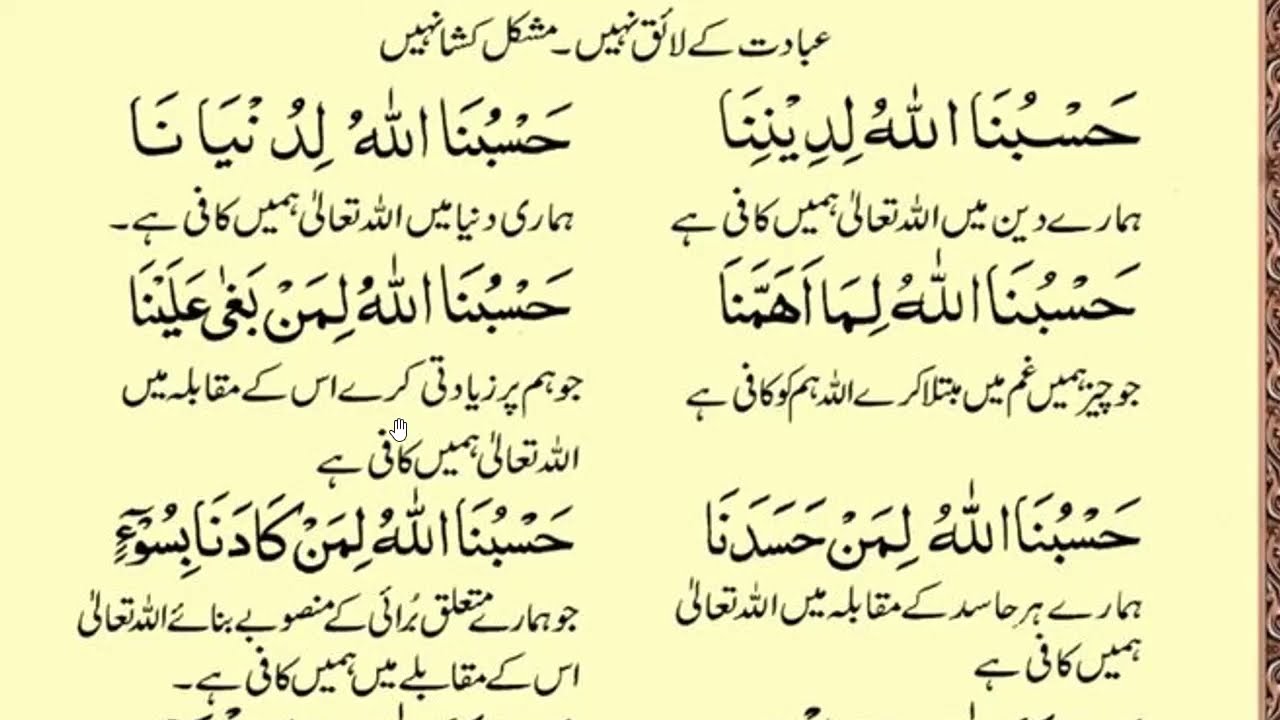 عبادت کے لائق نہیں۔ مشکل کشا نہیں
حَسْبُنَا اللّٰهُ لِدِيْنِنَا
حَسْبُنَا اللّٰهُ لِدُنْيَانَا
ہمارے دین میں اللہ تعالیٰ ہمیں کافی ہے
ہماری دنیا میں اللہ تعالیٰ ہمیں کافی ہے۔
حَسْبُنَا اللّٰهُ لِمَا اَهَمَّنَا
حَسْبُنَا اللّٰهُ لِمَنْ بَغٰى عَلَيْنَا
جو چیز ہمیں غم میں مبتلا کرے اللہ ہم کو کافی ہے
جو ہم پر زیادتی کرے اس کے مقابلہ میں
اللہ تعالیٰ ہمیں کافی ہے
حَسْبُنَا اللّٰهُ لِمَنْ حَسَدَنَا
حَسْبُنَا اللّٰهُ لِمَنْ كَادَنَا بِسُوْٓءٍ
ہمارے ہر حاسد کے مقابلہ میں اللہ تعالیٰ
ہمیں کافی ہے
جو ہمارے متعلق بُرائی کے منصوبے بنائے اللہ تعالیٰ
اس کے مقابلے میں ہمیں کافی ہے۔